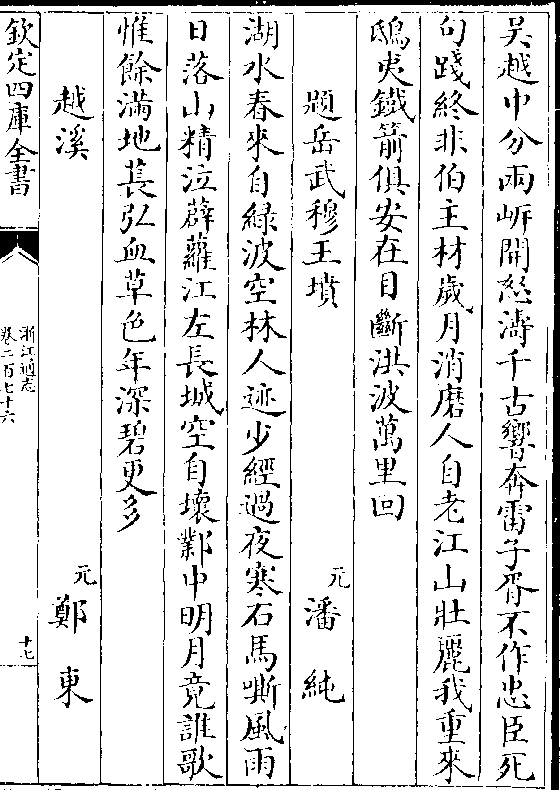 吴越中分兩岍開怒濤千古響奔雷子胥不作忠臣死
句踐終非伯主材歲月消磨人自老江山壯麗我重來
鴟夷鐵箭俱安在目斷洪波萬里回
題岳武穆王墳 元 潘純
湖水春來自綠波空林人迹少經過夜寒石馬嘶風雨
日落山精泣薜蘿江左長城空自壞鄴中明月竟誰歌
惟餘滿地萇弘血草色年深碧更多
越溪 元 鄭東
欽定四庫全書
浙江通志
卷二百七十六
十七